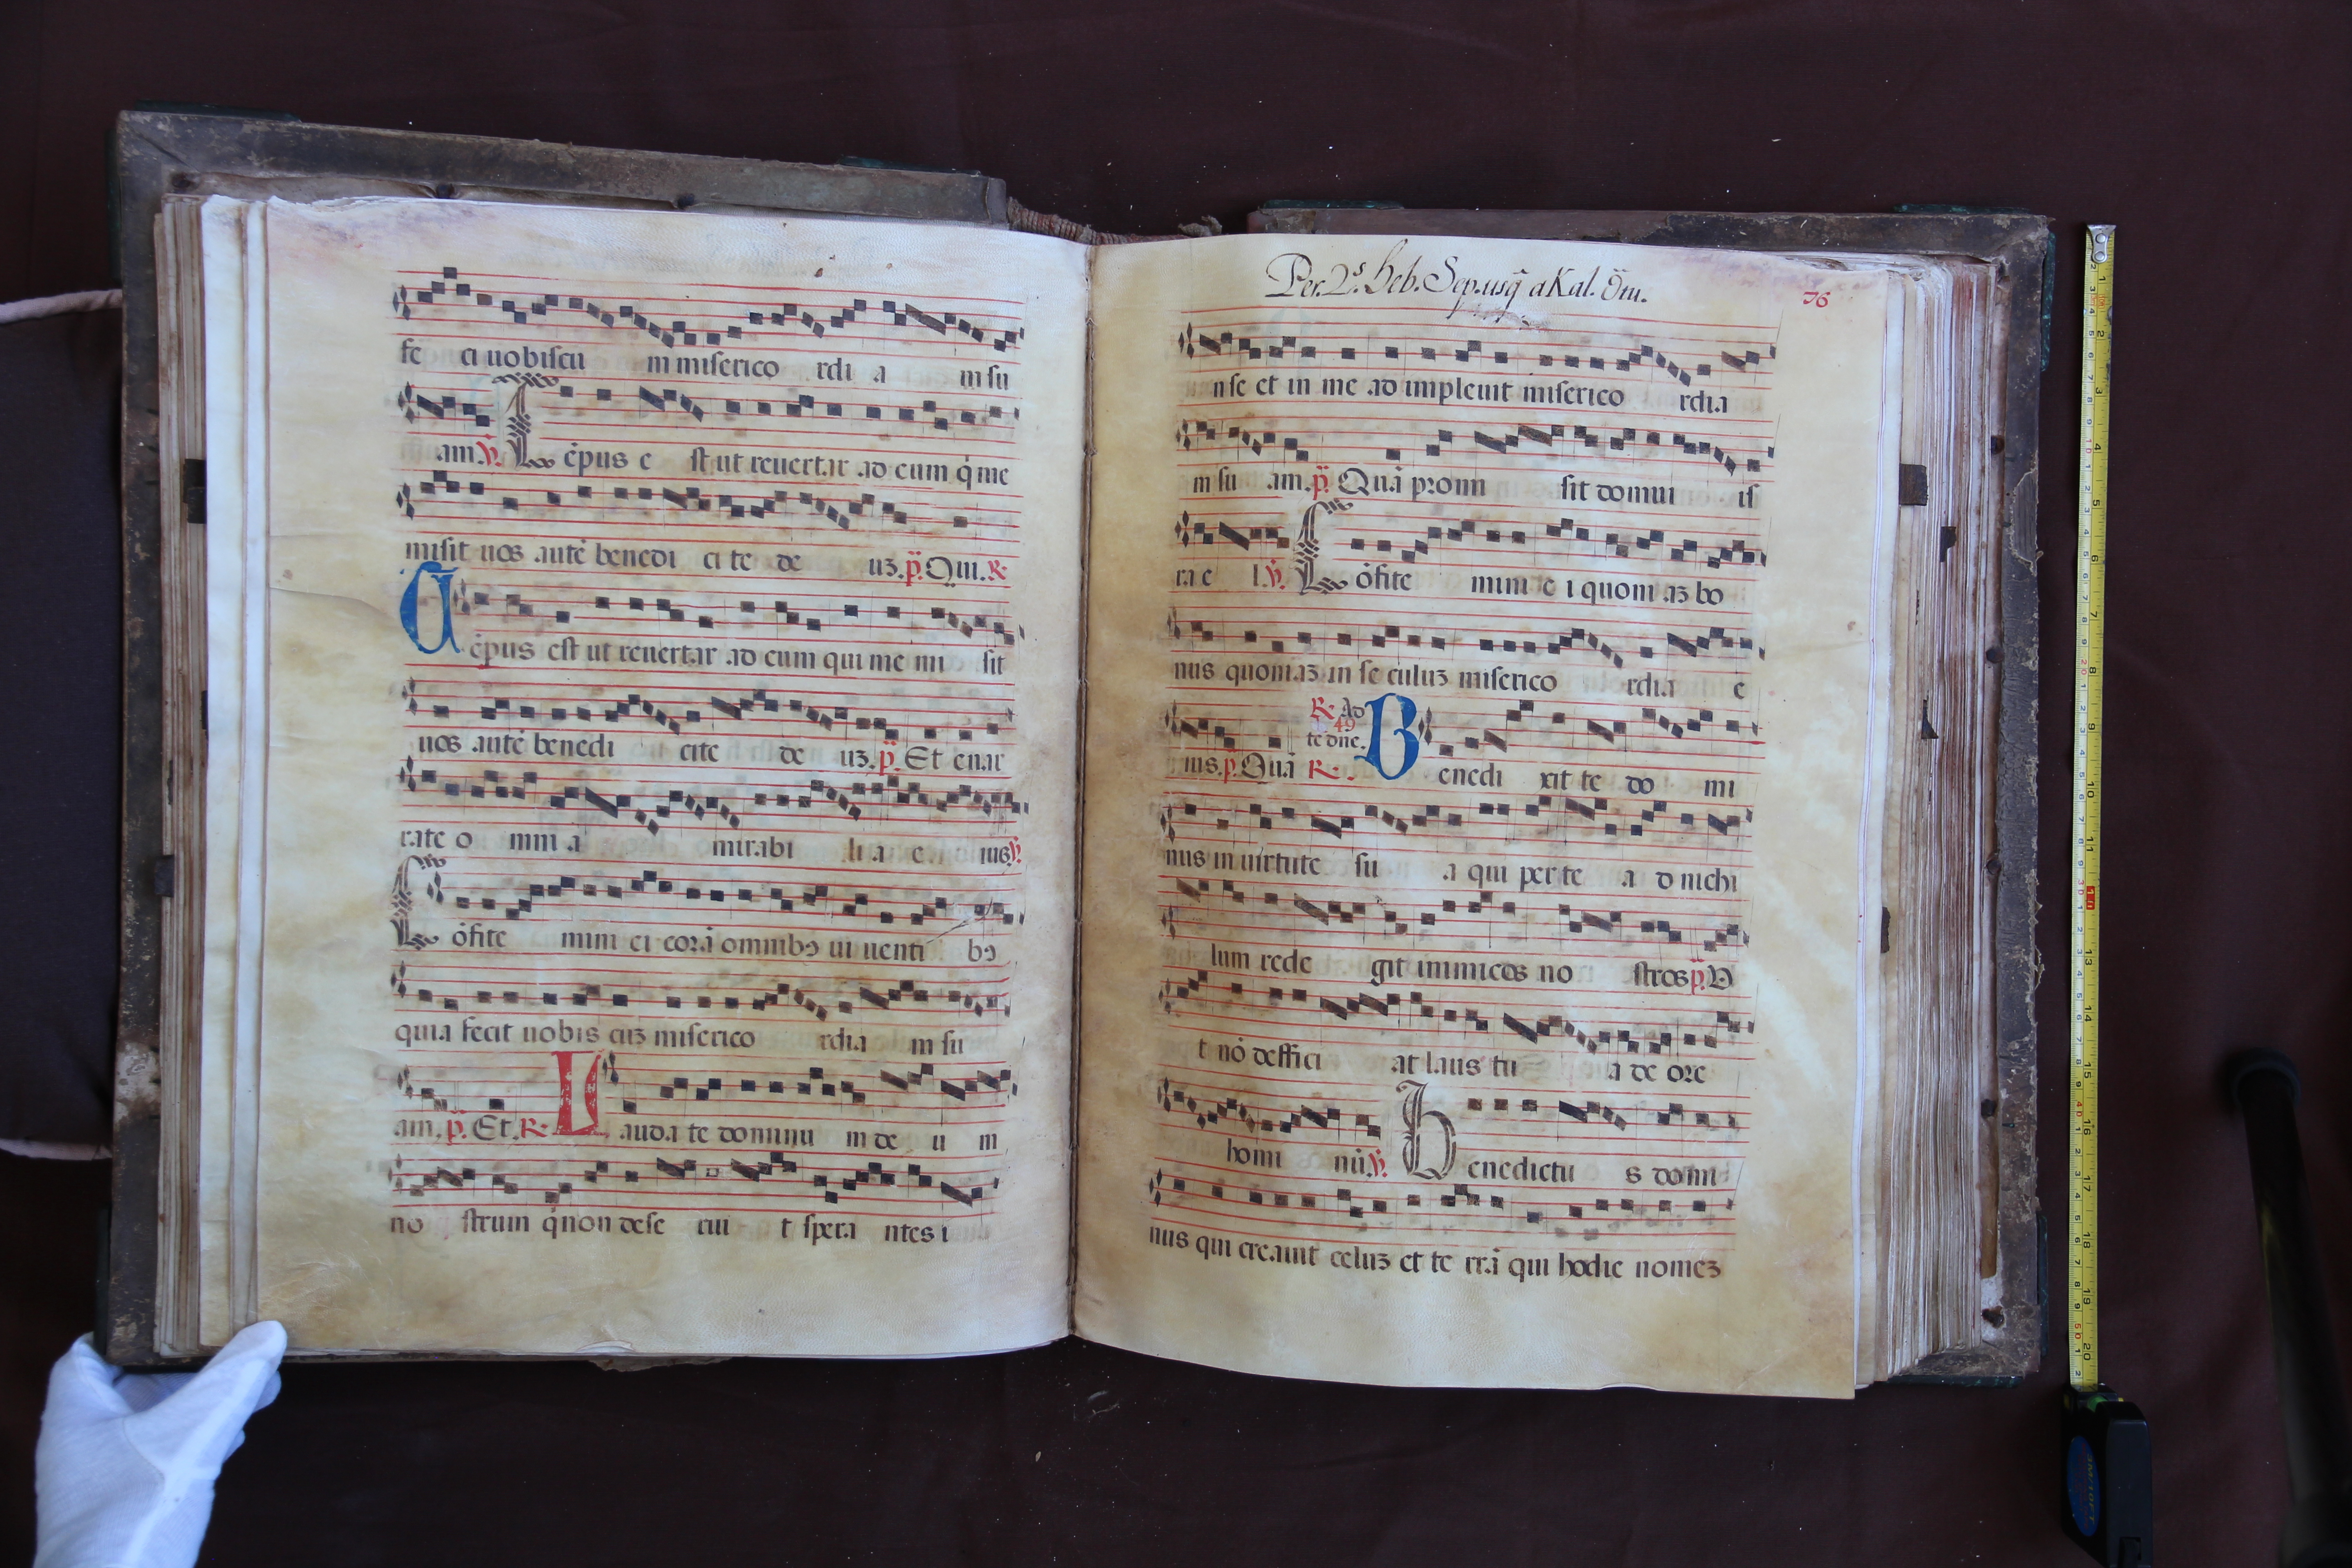 fe ci uobiscu m miserico rdi a m su
am. ℣. T ēpus e st ut reuertar ad eum q̇ me
misit uos autē benedi ci te de uꝫ. p̄. Qui. ℟
T ēpus est ut reuertar ad eum qui me mi sit
uos autē benedi cite de uꝫ. p̄. Et enar
rate o mni a mirabi li a e ius ℣.
C ōfite mini ei corā omnibꝯ ui uenti bꝯ
quia fecit uobis cuꝫ miserico rdia m su
am. p̄. Et. ℟. L auda te dominu m de u m
no strum q̇ non dese rui t spera ntes i
Per. 2.ᵃ heb. Sep. usq̄ a Kal. Ōtu.
76
n se et in me ad impleuit miserico rdia
m su am. p̄. Quā promi sit domui is
ra e l ℣. C ōfite mini e i quoni aꝫ bo
nus quoniaꝫ in se culuꝫ miserico rdia e
ius. p̄. Quā ℟. ℟. Ad te dn̄e. 49 B enedi xit te do mi
nus in uirtute su a qui per te a d nichi
lum rede git inimicos no stros p̄. V
t nō deffici at laus tu a de ore
homi nū ℣. B enedictu s domi
nus qui creauit celuꝫ et te rrā qui hodie nomeꝫ